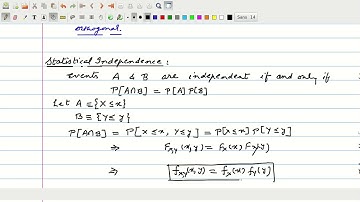 orthogonal.
Statistical Independence :
events A & B are independent if and only if
P[A∩B] = P[A] P[B]
Let A ≡ {X ≤ x}
B ≡ {Y ≤ y}
P[A∩B] = P[X ≤ x, Y ≤ y] = P[X ≤ x] P[Y ≤ y]
⇒ F_{X,Y}(x,y) = F_X(x) F_Y(y)
⇒ f_{XY}(x,y) = f_X(x) f_Y(y)